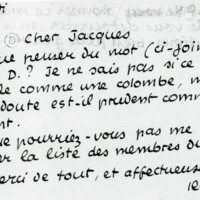 Cher Jacques
ue penser du mot (ci-join
D. ? Je ne sais pas si ce
le comme une colombe, m
doute est-il prudent comm
nt.
ne pourriez-vous pas me
er la liste des membres du
erci de tout, et affectueuse